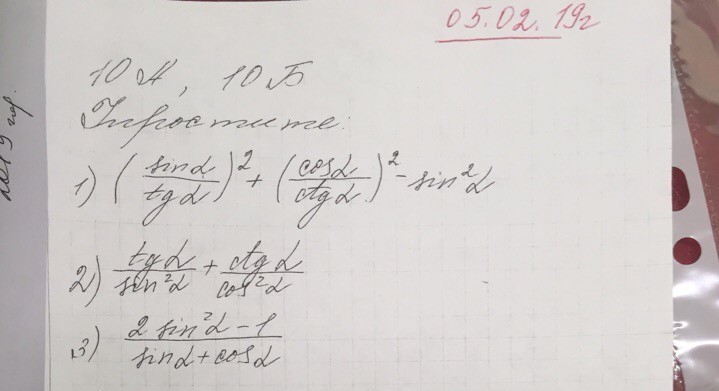 05.02.19г
10 А, 10 Б
Упростите:
1) (sinα/tgα)² + (cosα/ctgα)² - sin²α
2) tgα/sin²α + ctgα/cos²α
3) (2 sin²α - 1)/(sinα + cosα)